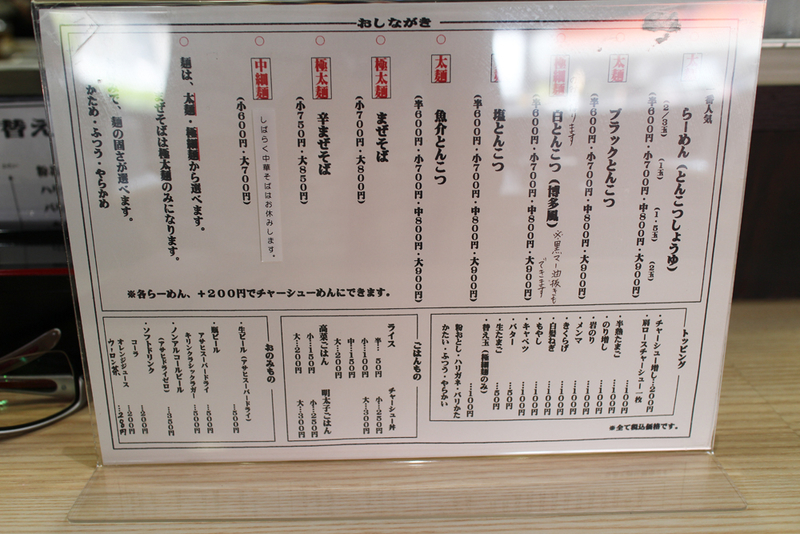 おしながき
一番人気
太麺
らーめん（とんこつしょうゆ）
（2/3玉）（1玉）（1.5玉）（2玉）
（半600円・小700円・中800円・大900円）
太麺
ブラックとんこつ
（半600円・小700円・中800円・大900円）
極細麺
白とんこつ（博多風）
※黒マー油抜きもできます
（半600円・小700円・中800円・大900円）
塩とんこつ
（半600円・小700円・中800円・大900円）
太麺
魚介とんこつ
（半600円・小700円・中800円・大900円）
極太麺
まぜそば
（小700円・大800円）
極太麺
辛まぜそば
（小750円・大850円）
中細麺
しばらく中華そばはお休みします。
（小600円・大700円）
麺は、太麺・極細麺から選べます。
まぜそばは極太麺のみになります。
麺の固さが選べます。
かため・ふつう・やらかめ
※各らーめん、+200円でチャーシューめんにできます。
トッピング
・チャーシュー増し…200円
・肩ロースチャーシュー一枚
・半熟たまご…100円
・のり増し…100円
・岩のり…100円
・メンマ…100円
・きくらげ…100円
・白髪ねぎ…100円
・もやし…100円
・キャベツ…100円
・バター…50円
・生たまご…50円
・替え玉（極細麺のみ）…100円
粉おとし・ハリガネ・バリかた
かたい・ふつう・やらかい
※全て税込価格です。
ごはんもの
ライス
半…50円
小…100円
中…150円
大…200円
高菜ごはん
小…150円
大…200円
チャーシュー丼
小…250円
大…300円
明太子ごはん
小…250円
大…300円
おのみもの
・生ビール（アサヒスーパードライ）…500円
・瓶ビール
アサヒスーパードライ…500円
キリンクラシックラガー…500円
・ノンアルコールビール
（アサヒドライゼロ）…350円
・ソフトドリンク
コーラ…200円
オレンジジュース…200円
ウーロン茶…200円
替え